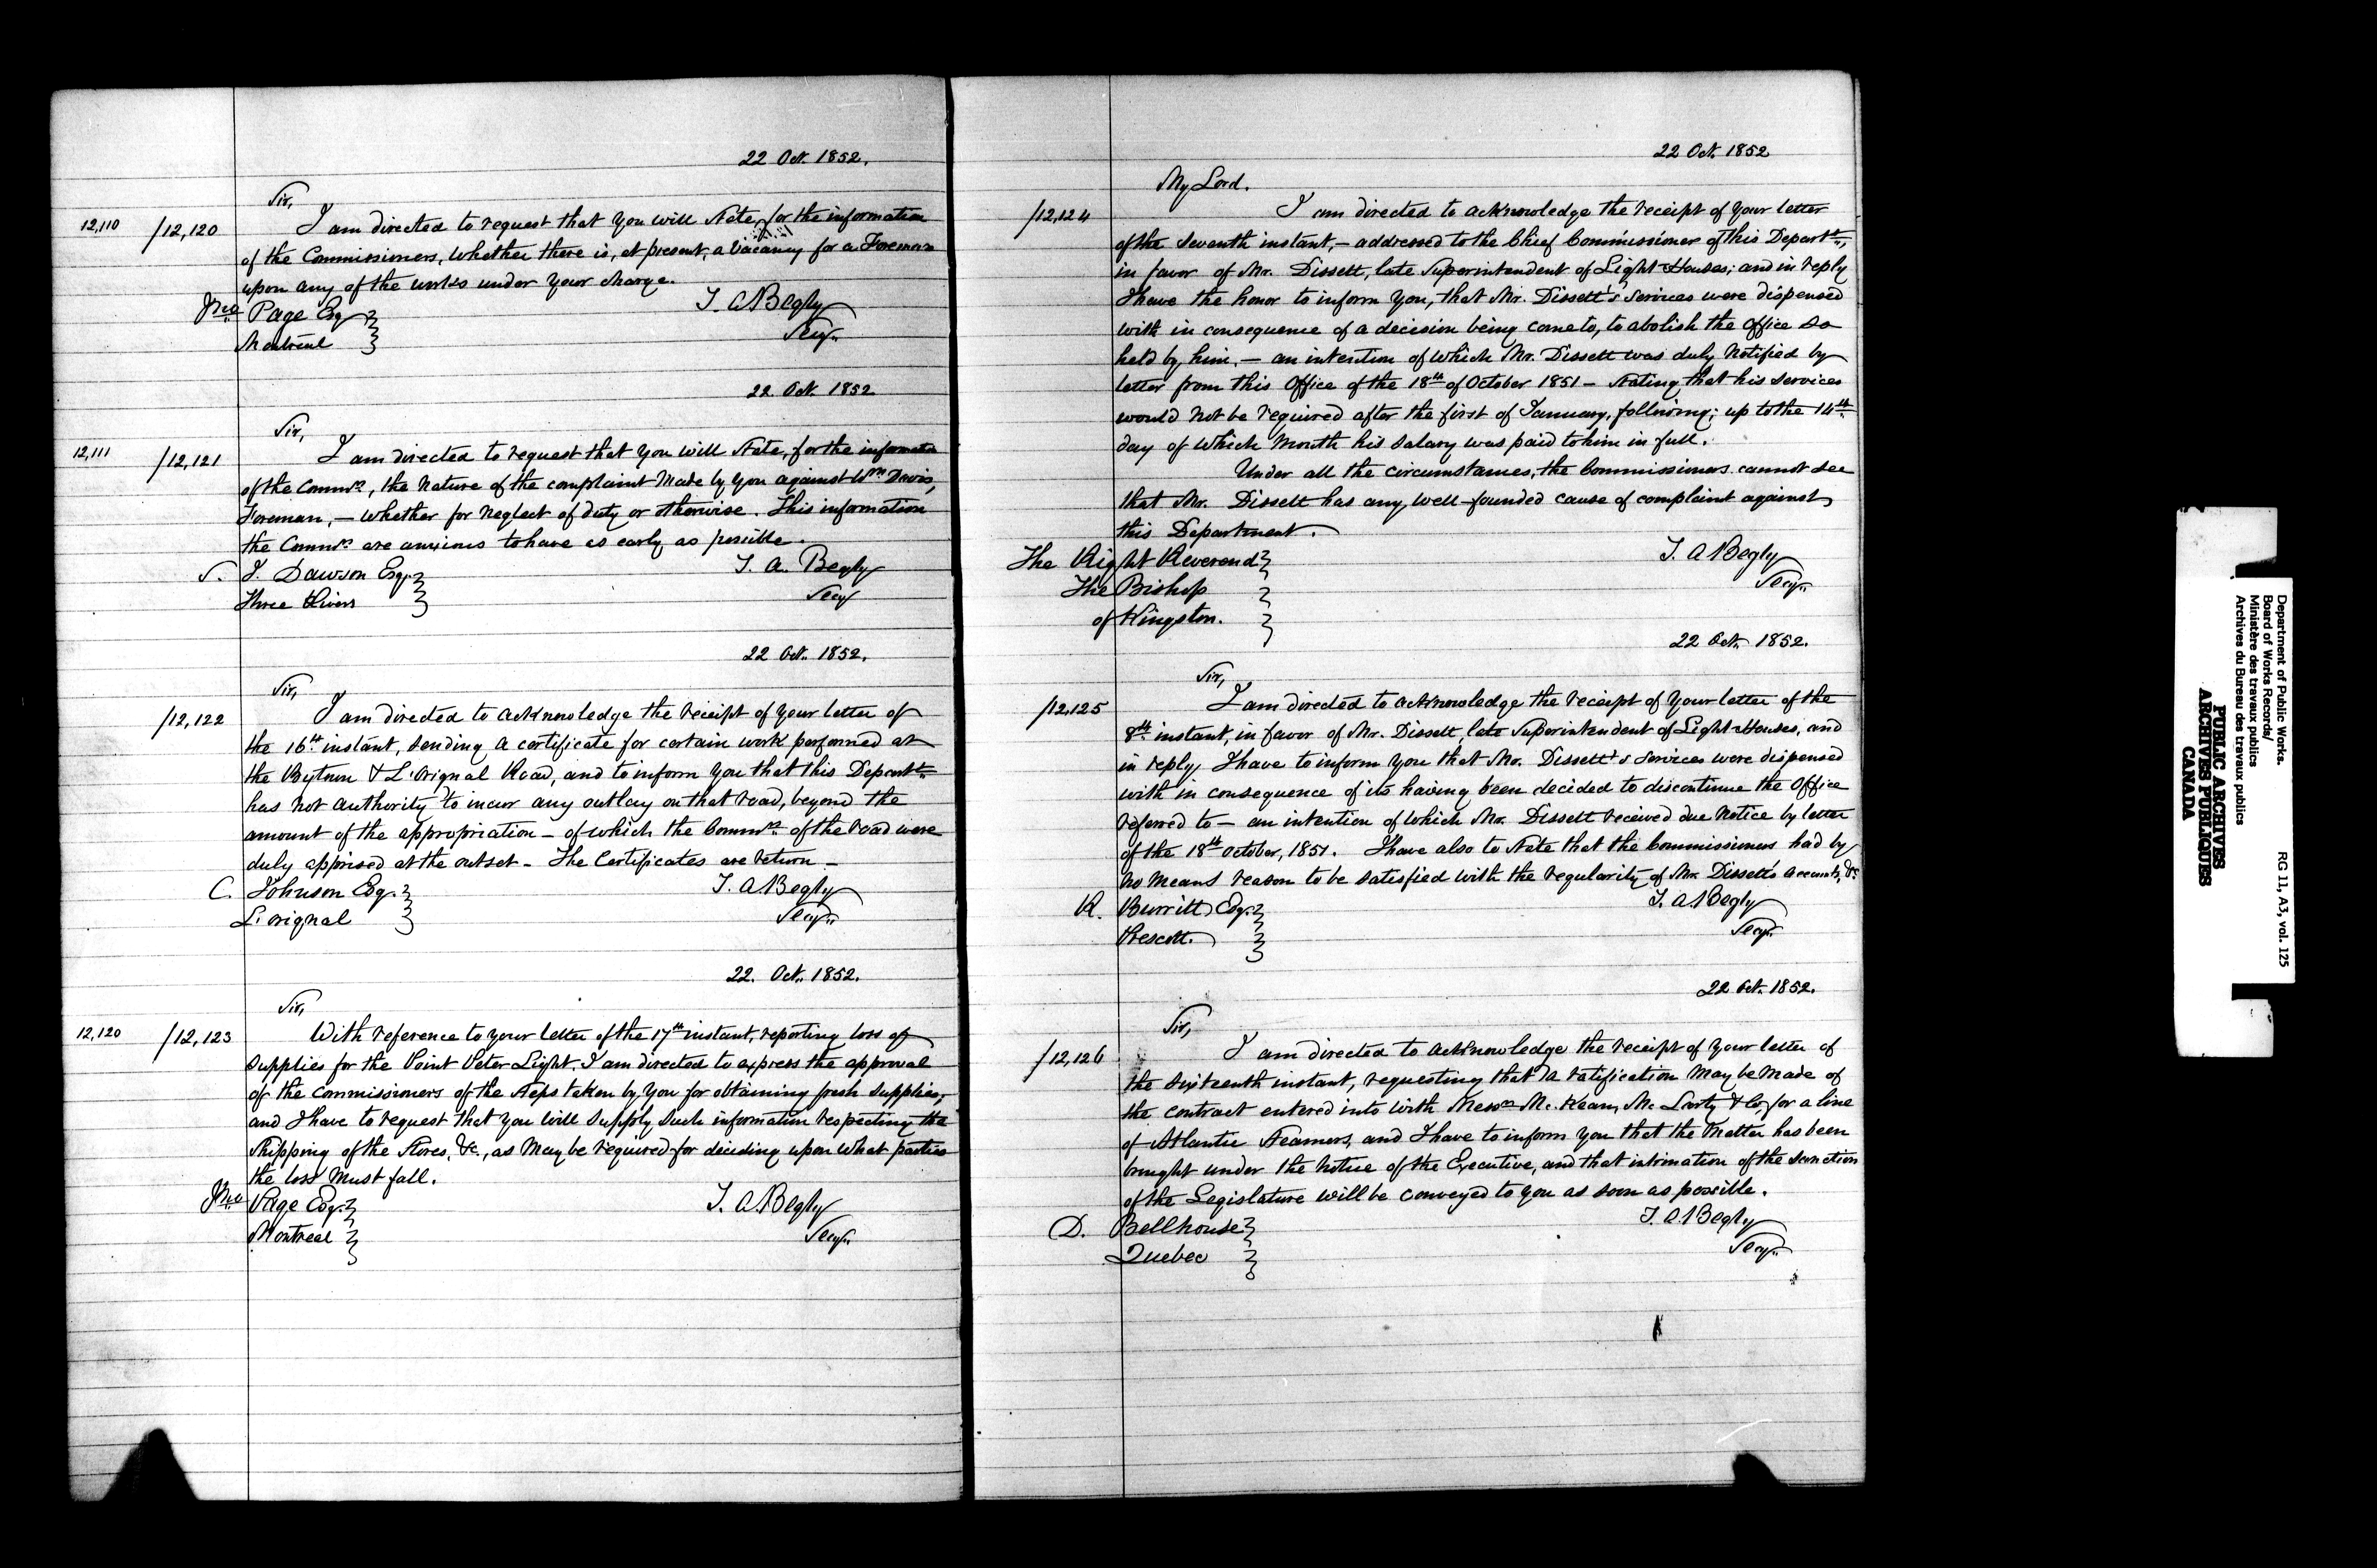 22 Oct. 1852.
Sir,
12,110 /12,120 I am directed to request that you will State, for the information
of the Commissioners, whether there is, at present, a vacancy for a Foreman
upon any of the works under your charge.
Jno Page Esq
Montreal
T. A Begly
Secy.
22 Oct. 1852
Sir,
12,111 /12,121 I am directed to request that you will State, for the information
of the Commrs, the nature of the complaint made by you against Wm Davis,
Foreman, — whether for neglect of duty or otherwise. This information
the Commrs are anxious to have as early as possible.
S. J. Dawson Esq.
Three Rivers
T. A. Begly
Secy
22 Oct. 1852.
Sir,
/12,122 I am directed to acknowledge the receipt of your letter of
the 16th instant, sending a certificate for certain work performed at
the Bytown & L'Orignal Road, and to inform you that this Departt
has not authority to incur any outlay on that road, beyond the
amount of the appropriation — of which the Commrs of the road were
duly apprised at the outset — The Certificates are return —
C. Johnson Esq.
L'orignal
T. A Begly
Secy.
22. Oct. 1852.
Sir,
12,120 /12,123 With reference to your letter of the 17th instant, reporting loss of
supplies for the Point Peter Light. I am directed to express the approval
of the Commissioners of the Steps taken by you for obtaining fresh supplies,
and I have to request that you will supply such information respecting the
Shipping of the Stores, &c., as may be required for deciding upon what parties
the loss must fall.
Jno Page Esq.
Montreal
T. A. Begly
Secy.
22 Oct. 1852
My Lord.
/12,124 I am directed to acknowledge the receipt of your letter
of the seventh instant, — addressed to the Chief Commissioner of this Departt.,
in favor of Mr. Dissett, late Superintendent of Light Houses; and in reply
I have the honor to inform you, that Mr. Dissett's services were dispensed
with in consequence of a decision being come to, to abolish the Office so
held by him, — an intention of which Mr. Dissett was duly notified by
letter from this Office of the 18th of October 1851 — Stating that his services
would not be required after the first of January, following; up to the 14th
day of which month his salary was paid to him in full.
Under all the circumstances, the Commissioners cannot see
that Mr. Dissett has any well-founded cause of complaint against
this Department.
The Right Reverend
The Bishop
of Kingston.
T. A Begly
Secy.
22 Oct. 1852.
Sir,
/12,125 I am directed to acknowledge the receipt of your letter of the
8th instant, in favor of Mr. Dissett, late Superintendent of Light Houses, and
in reply I have to inform you that Mr. Dissett's services were dispensed
with in consequence of its having been decided to discontinue the Office
referred to — an intention of which Mr. Dissett received due notice by letter
of the 18th October, 1851. I have also to State that the Commissioners had by
no means reason to be satisfied with the regularity of Mr. Dissett's accounts, &c
R. Burritt Esq.
Prescott.
T. A. Begly
Secy.
22 Oct. 1852.
Sir,
/12,126 I am directed to acknowledge the receipt of your letter of
the sixteenth instant, requesting that a ratification may be made of
the contract entered into with Messrs Mc. Kean, Mc Larty & Co, for a line
of Atlantic Steamers, and I have to inform you that the matter has been
brought under the notice of the Executive, and that intimation of the sanction
of the Legislature will be conveyed to you as soon as possible.
D. Bellhouse
Quebec
T. A Begly
Secy.
Department of Public Works.
Board of Works Records/
Ministère des travaux publics
Archives du Bureau des travaux publics
RG 11, A3, vol. 125
PUBLIC ARCHIVES
ARCHIVES PUBLIQUES
CANADA